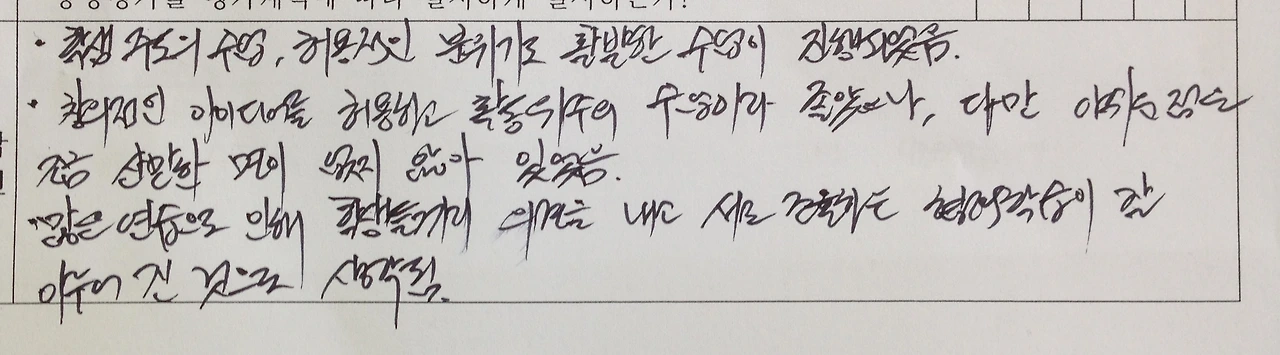 · 학생 주도의 수업, 허용적인 분위기로 활발한 수업이 진행되었음.
· 창의적인 아이디어를 허용하고 활동위주의 수업이라 좋았으나, 다만 아쉬운 점은
조금 산만한 면이 없지 않아 있었음.
많은 연습으로 인해 학생들끼리 의견을 내고 서로 하는 협력학습이 잘
이루어 진 것으로 생각됨.